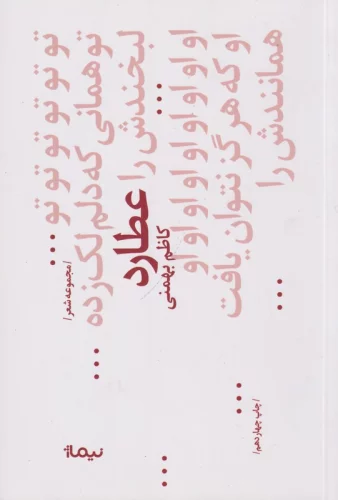 تو تو تو تو تو تو تو ...
تو همانی که دلم لک زده ...
لبخندش را ...
او او او او او او او او او
او که هرگز نتوان یافت ...
همانندش را ...
/مجموعه شعر/
عطارد
کاظم بهمنی
/چاپ چهاردهم/
نیماژ